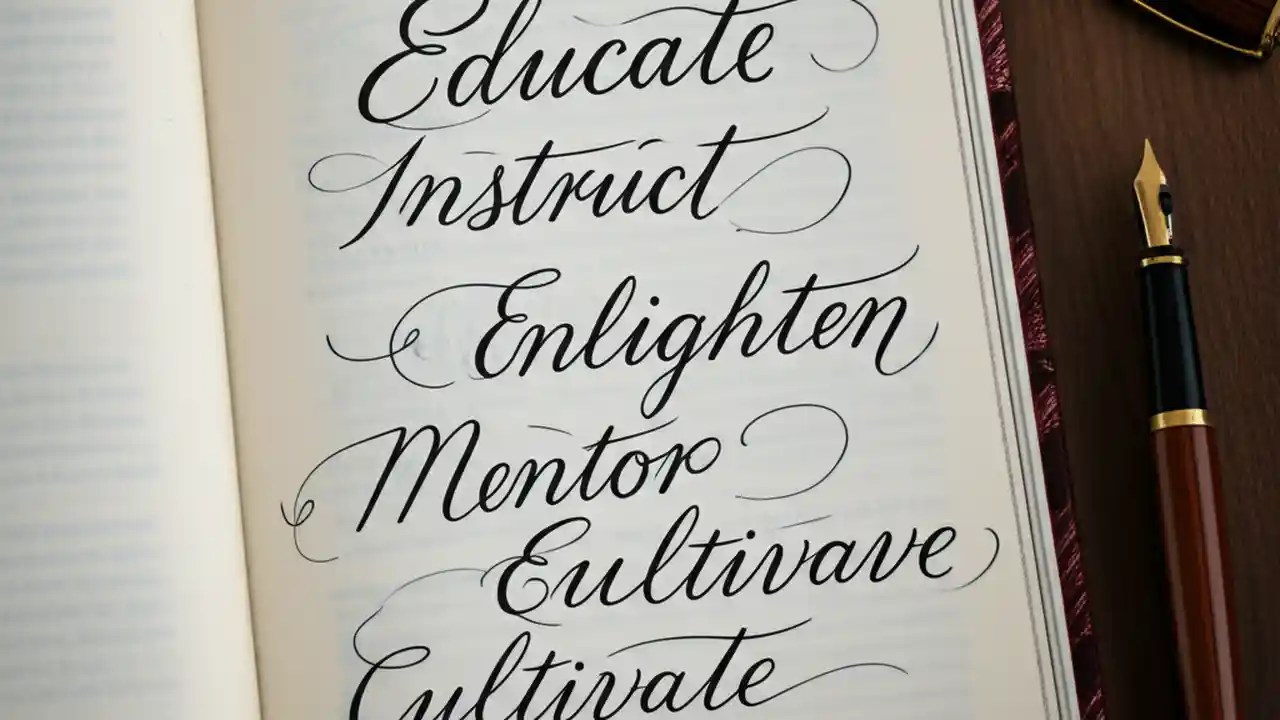 Educate
Instruct
Enlighten
Mentor
Eultivave
Cultivate